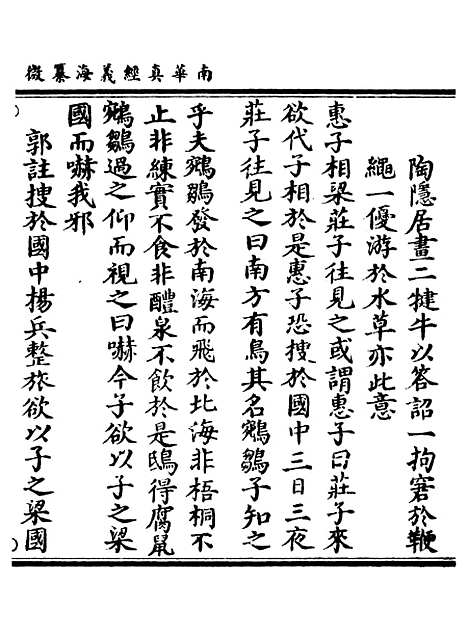 南華真經義海纂微
陶隱居畫二犍牛以答詔一拘窘於鞭
繩一優游於水草亦此意
惠子相梁莊子往見之或謂惠子曰莊子來
欲代子相於是惠子恐搜於國中三日三夜
莊子往見之曰南方有鳥其名鵷鶵子知之
乎夫鵷鶵發於南海而飛於北海非梧桐不
止非練實不食非醴泉不飲於是鴟得腐鼠
鵷鶵過之仰而視之曰嚇今子欲以子之梁
國而嚇我邪
郭註搜於國中揚兵整旅欲以子之梁國